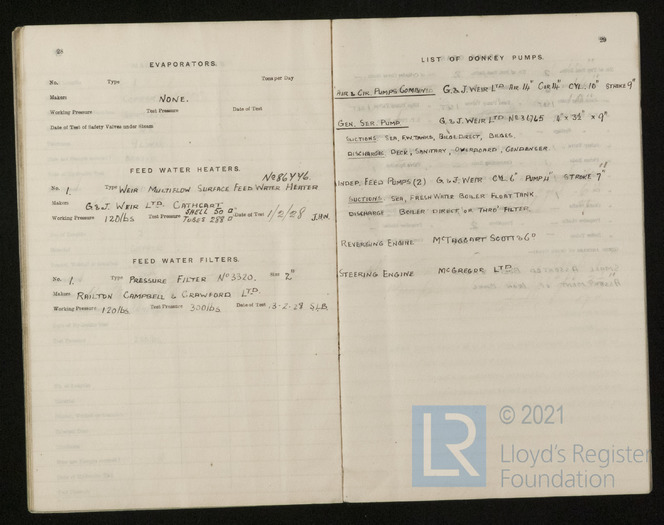 28
EVAPORATORS.
No. Type Tons per Day
Makers NONE.
Working Pressure Test Pressure Date of Test
Date of Test of Safety Valves under Steam
FEED WATER HEATERS.
No. 1. Type WEIR MULTIFLOW SURFACE FEED WATER HEATER No 86446.
Makers G & J. WEIR LTD. CATHCART
Working Pressure 120 lbs Test Pressure SHELL 50 □" TUBES 288 □" Date of Test 1/2/28 J.H.N.
FEED WATER FILTERS.
No. 1. Type PRESSURE FILTER No 3320. Size 2"
Makers RAILTON CAMPBELL & CRAWFORD LTD.
Working Pressure 120 lbs Test Pressure 300 lbs Date of Test 3-2-28 S.L.B.
29
LIST OF DONKEY PUMPS.
AIR & CIR. PUMPS COMBINED G. & J. WEIR LTD AIR 14" CIR 14" CYL. 10" STROKE 9"
GEN. SER. PUMP G. & J. WEIR LTD No 36765 4" x 3½" x 9"
SUCTIONS SEA, F.W. TANKS, BILGE DIRECT, BILGES.
DISCHARGES DECK, SANITARY, OVERBOARD, CONDENSER.
INDEP. FEED PUMPS (2) G & J. WEIR CYL 6" PUMP 4" STROKE 7"
SUCTIONS SEA, FRESH WATER BOILER FLOAT TANK
DISCHARGE BOILER DIRECT OR THRO' FILTER
REVERSING ENGINE McTAGGART SCOTT & Co
STEERING ENGINE McGREGOR LTD
LR
© 2021
Lloyd's Register
Foundation